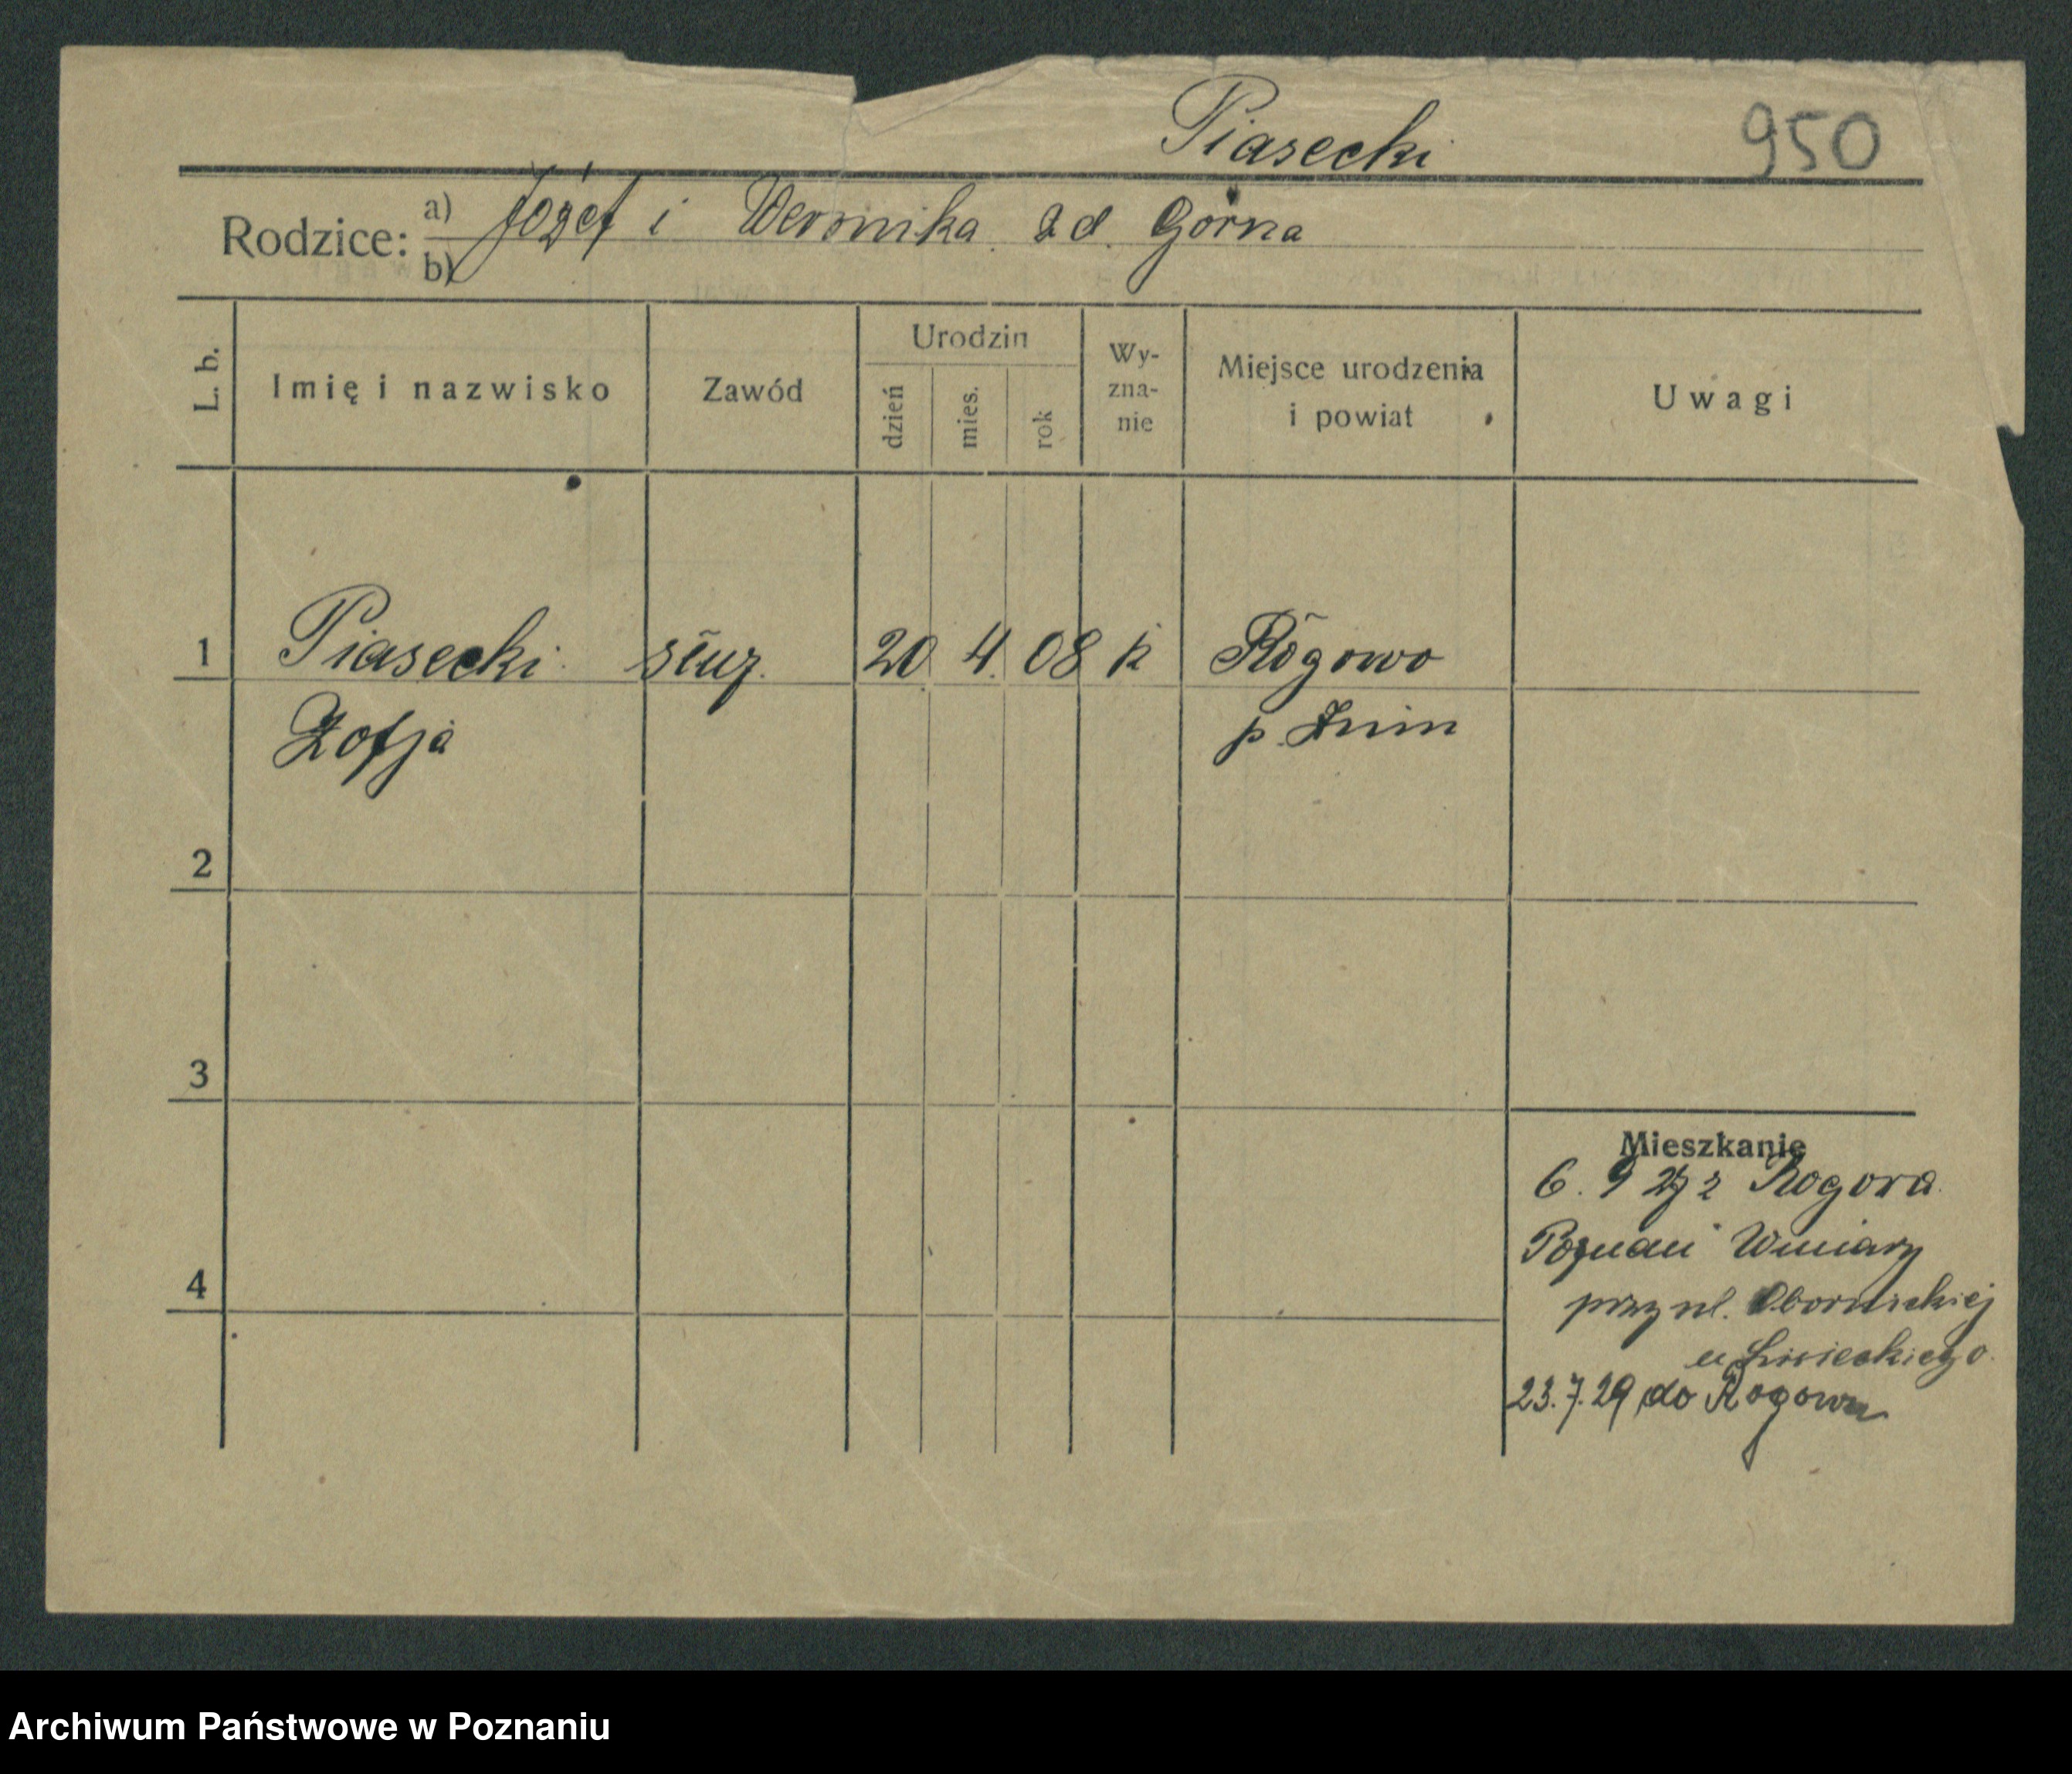 Piasecki 950
Rodzice: a) Józef i Weronika zd. Górna
b)
L. b. Imię i nazwisko Zawód Urodzin dzień mies. rok Wy-zna-nie Miejsce urodzenia i powiat Uwagi
1 Piasecki służ. 20 4. 08 k Rogowo
Zofja p. Żnin
2
3
Mieszkanie
6. 9 27 z Rogowa
Poznań Winiary
4
przy ul. Obornickiej
u Lisieckiego.
23.7.29 do Rogowa
Archiwum Państwowe w Poznaniu